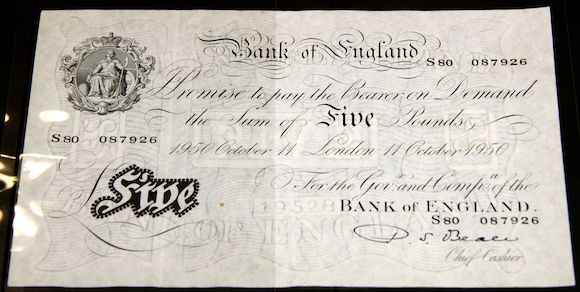 Bank of England
S80 087926
I Promise to pay the Bearer on Demand
the Sum of Five Pounds
S80 087926
1950 October 11 London 11 October 1950
Five
For the Govr. and Compa. of the
BANK OF ENGLAND.
S80 087926
P. S. Beale
Chief Cashier.